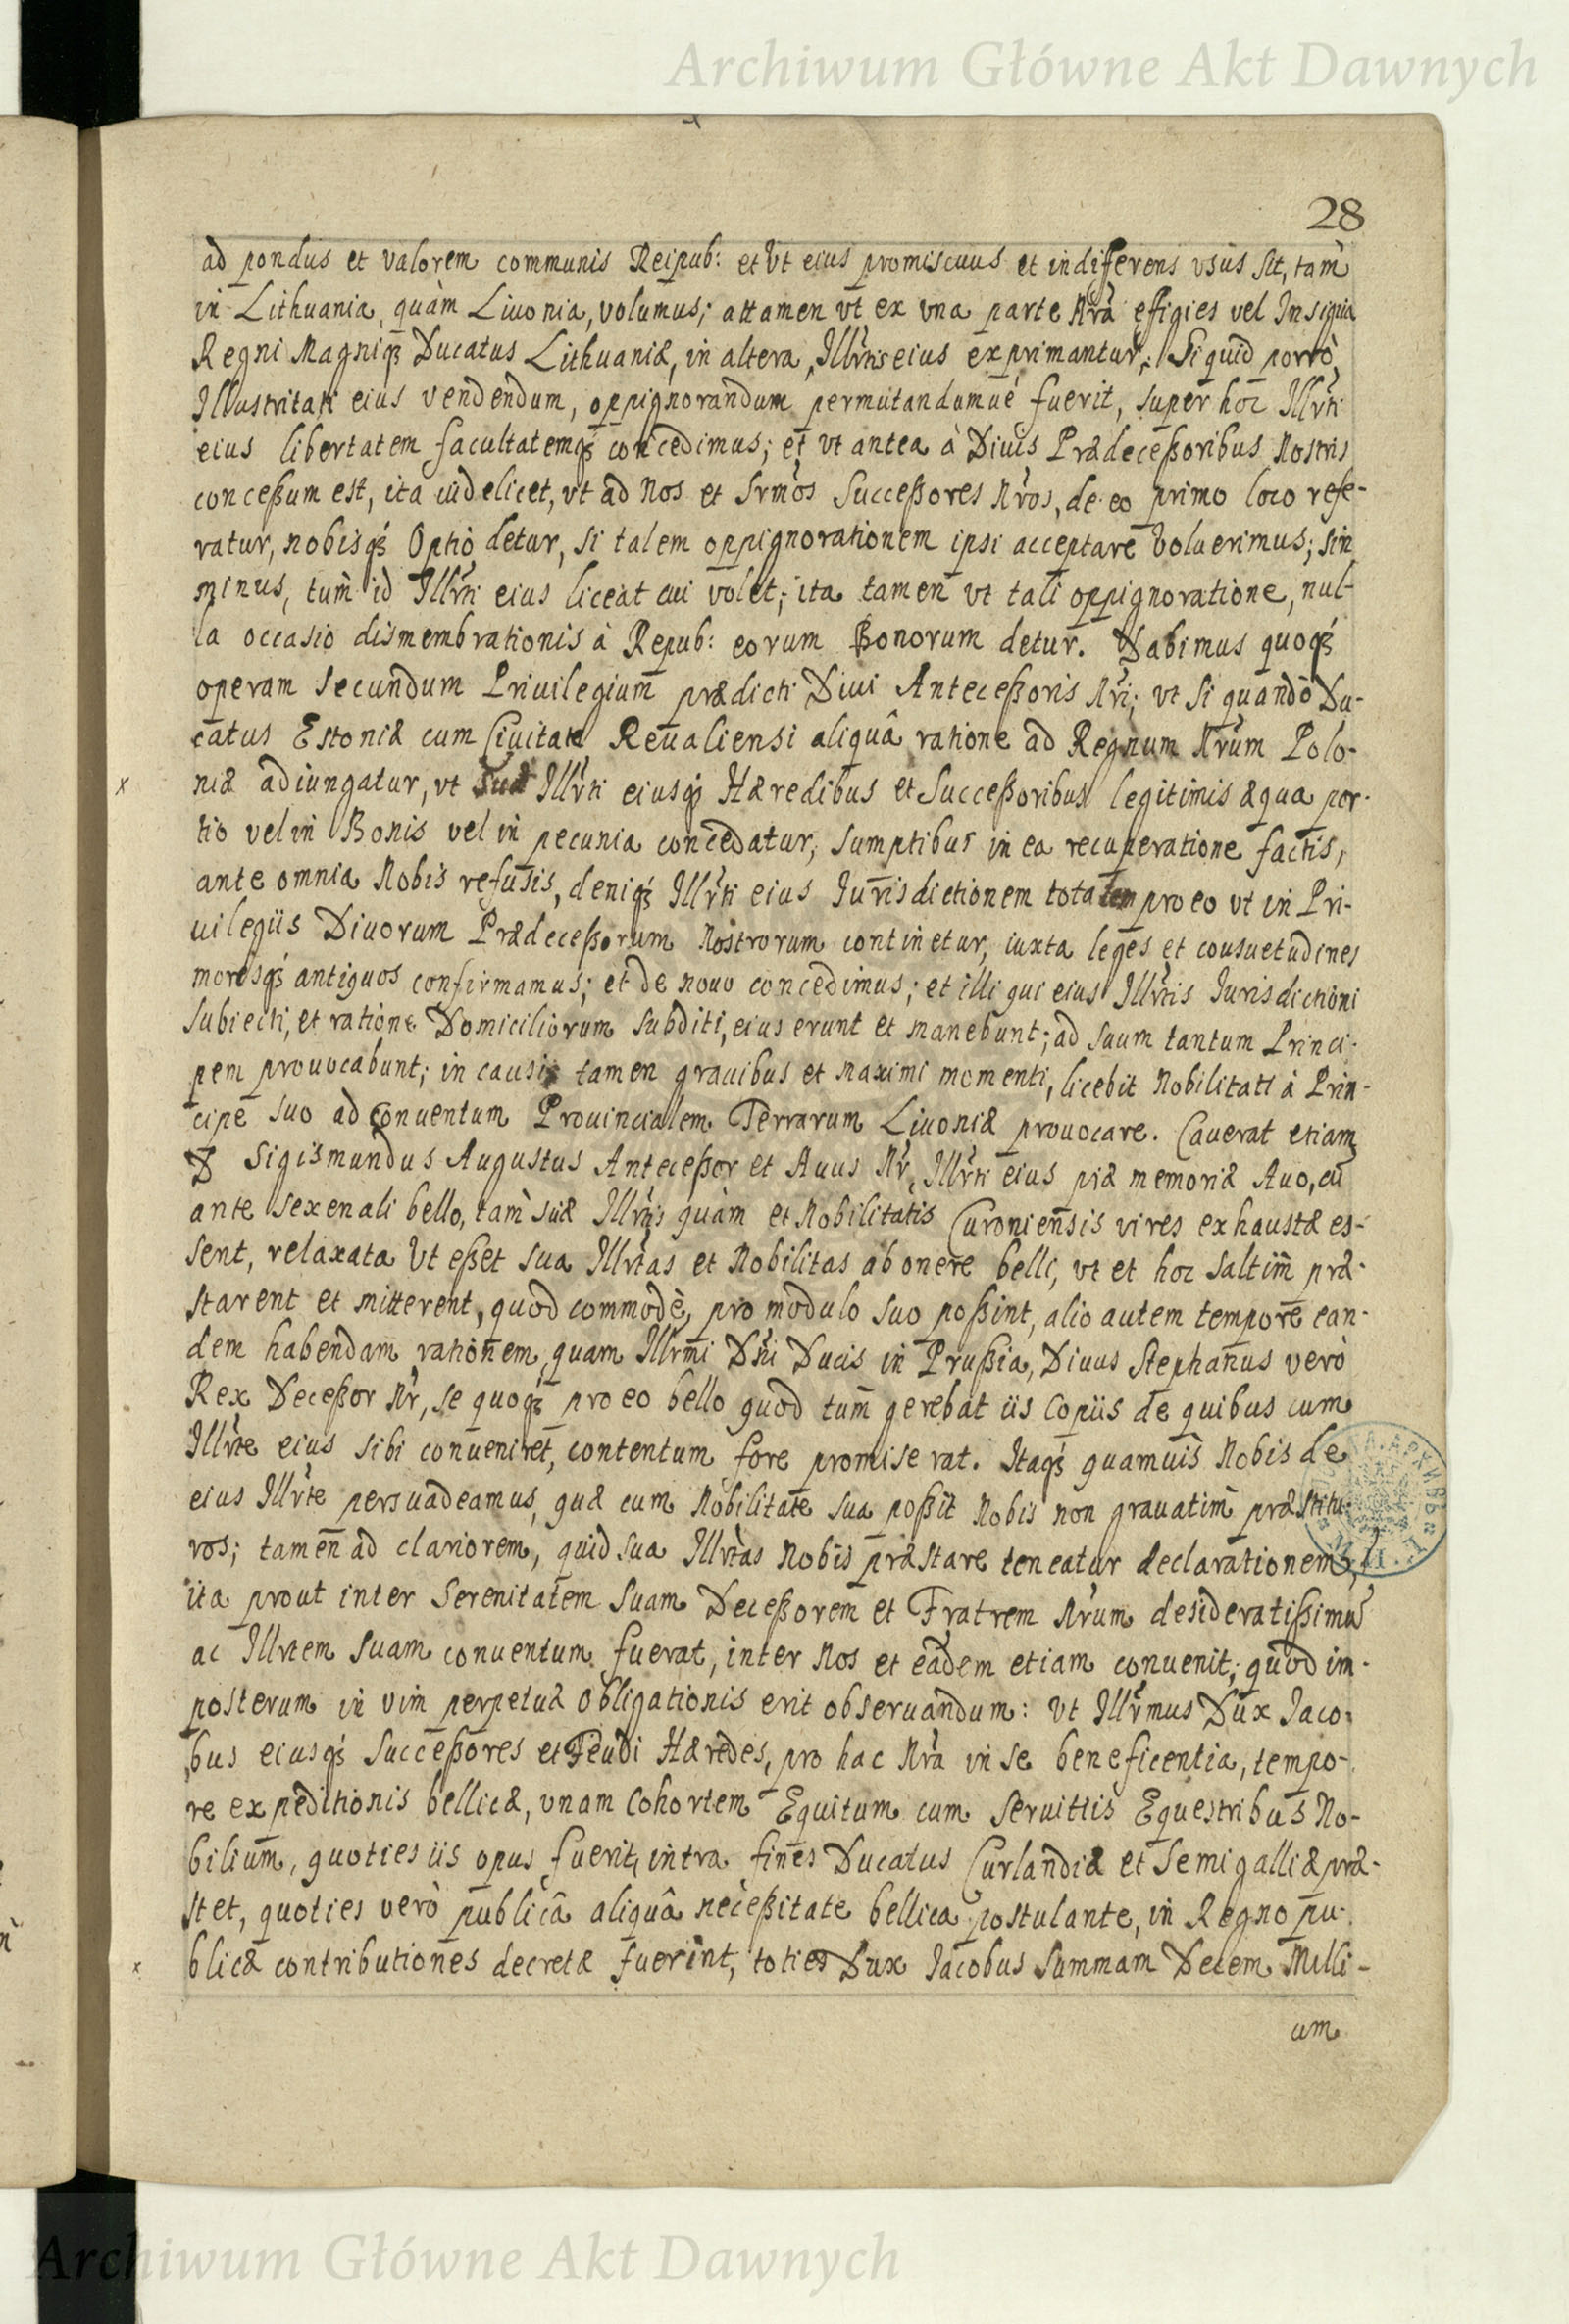 Archiwum Główne Akt Dawnych
28
ad pondus et valorem communis Reipub: et Vt eius promiscuus et indifferens vsus sit, tam̀
in Lithuania, quàm Liuonia, volumus; attamen vt ex vna parte Nrã effigies vel Insignia
Regni Magniq́ Ducatus Lithuaniæ, in altera, Illrtis eius exprimantur; Si quid porrò,
Illustritati eius vendendum, oppignorandum permutandumuè fuerit, super hoc Illrti
eius libertatem facultatemq́ concedimus; et vt antea à Diuis Prædeceßoribus Nostris
conceßum est, ita videlicet, vt ad Nos et Srmos Succeßores Nros, de eo primo loco refe-
ratur, nobisq́ Optio detur, si talem oppignorationem ipsi acceptare Voluerimus; sin
minus, tum̀ id Illrti eius liceat cui volet; ita tamen vt tali oppignoratione, nul-
la occasio dismembrationis à Repub: eorum Bonorum detur. Dabimus quoq́
operam secundum Priuilegium prædicti Diui Anteceßoris Nri; vt si quandò Du-
catus Estoniæ cum Ciuitate Reualiensi aliquâ ratione ad Regnum Nrum Polo-
x niæ adiungatur, vt suæ Illrti eiusq́ Hæredibus et Succeßoribus legitimis æqua por-
tio vel in Bonis vel in pecunia concedatur, sumptibus in ea recuperatione factis,
ante omnia Nobis refusis, deniq́ Illrti eius Iurisdictionem totalem pro eo vt in Pri-
uilegiis Diuorum Prædeceßorum Nostrorum continetur, iuxta leges et consuetudines
moresq́ antiquos confirmamus; et de nouo concedimus; et illi qui eius Illrtis Iurisdictioni
subiecti, et ratione Domiciliorum subditi, eius erunt et manebunt; ad suum tantum Princi-
pem prouocabunt; in causis tamen grauibus et maximi momenti, licebit Nobilitati à Prin-
cipe suo ad Conuentum Prouincialem Terrarum Liuoniæ prouocare. Cauerat etiam
D Sigismundus Augustus Anteceßor et Auus Nr, Illrti eius piæ memoriæ Auo, cũ
ante sexenali bello, tam̀ suæ Illrtis quàm et Nobilitatis Curoniensis vires exhaustæ es-
sent, relaxata Vt eßet sua Illrtas et Nobilitas ab onere belli, vt et hoc saltim̃ præ-
starent et mitterent, quod commodè, pro modulo suo poßint, alio autem tempore ean-
dem habendam rationem, quam Illrmi Dni Ducis in Prußia, Diuus Stephanus verò
Rex Deceßor Nr, se quoq́ pro eo bello quod tum̃ gerebat iis Copiis de quibus cum
Illrte eius sibi conueniret, contentum fore promiserat. Itaq́ quamuis Nobis de
eius Illrte persuadeamus, quæ cum Nobilitate sua poßit Nobis non grauatim̀ præstitu-
ros; tamen ad clariorem, quid sua Illrtas Nobis præstare teneatur declarationem,
ita prout inter Serenitatem suam Deceßorem et Fratrem Nrum desideratißimũ
ac Illrtem suam conuentum fuerat, inter Nos et eadem etiam conuenit; quod im-
posterum in vim perpetuæ Obligationis erit obseruandum: Vt Illrmus Dux Iaco-
bus eiusq́ Succeßores et Feudi Hæredes, pro hac Nra in se beneficentia, tempo-
re expeditionis bellicæ, vnam Cohortem Equitum cum seruitiis Equestribus No-
bilium, quoties iis opus fuerit, intra fines Ducatus Curlandiæ et Semigalliæ præ-
stet, quoties verò publicâ aliquâ neceßitate bellica postulante, in Regno pu-
x blicæ contributiones decretæ fuerint, toties Dux Iacobus Summam Decem Milli-
um
Archiwum Główne Akt Dawnych